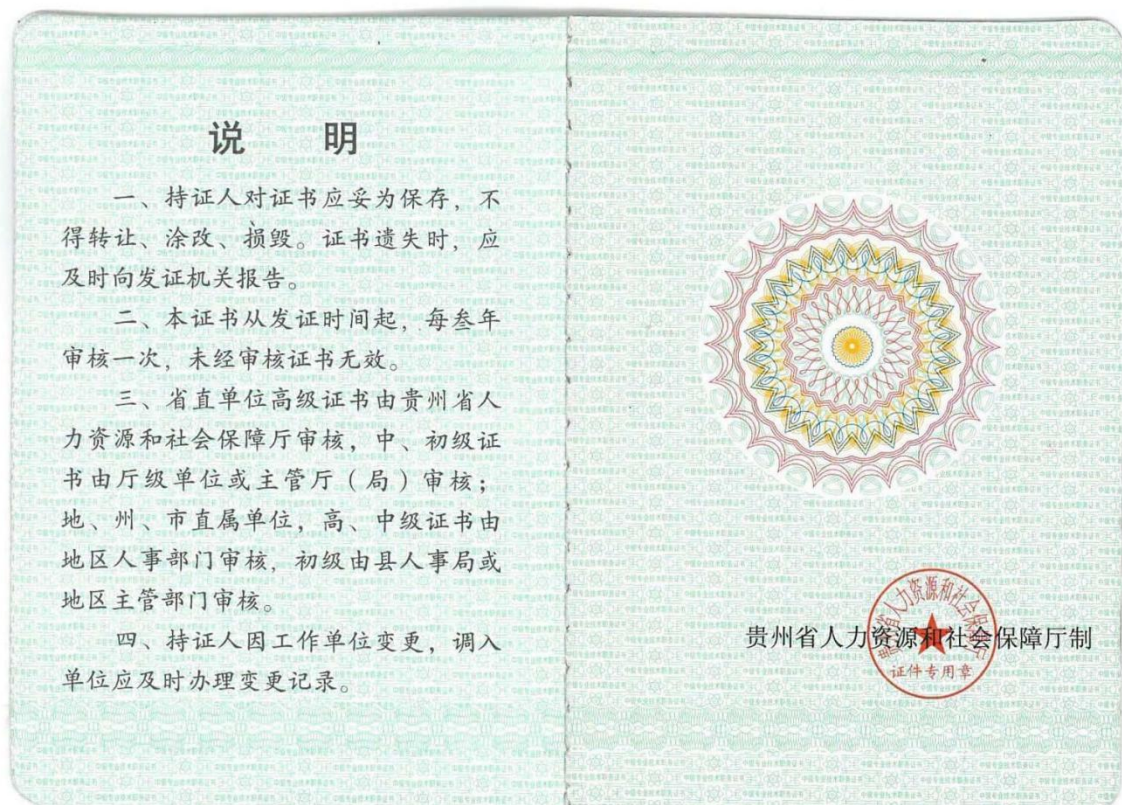 说 明
一、持证人对证书应妥为保存，不
得转让、涂改、损毁。证书遗失时，应
及时向发证机关报告。
二、本证书从发证时间起，每叁年
审核一次，未经审核证书无效。
三、省直单位高级证书由贵州省人
力资源和社会保障厅审核，中、初级证
书由厅级单位或主管厅（局）审核；
地、州、市直属单位，高、中级证书由
地区人事部门审核，初级由县人事局或
地区主管部门审核。
四、持证人因工作单位变更，调入
单位应及时办理变更记录。
贵州省人力资源和社会保障厅
贵州省人力资源和社会保障厅制
证件专用章